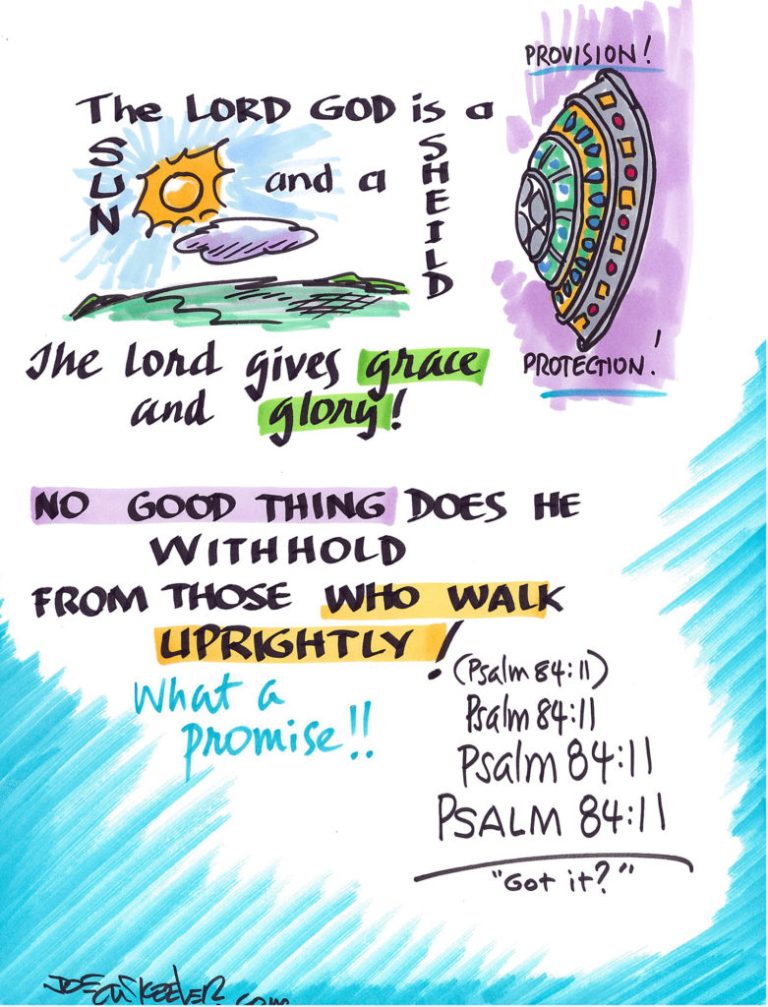 PROVISION!
The LORD GOD is a
SUN and a SHEILD
PROTECTION!
The Lord gives grace
and glory!
NO GOOD THING DOES HE
WITHHOLD
FROM THOSE WHO WALK
UPRIGHTLY!
(Psalm 84:11)
What a
promise!!
Psalm 84:11
Psalm 84:11
PSALM 84:11
"Got it?"